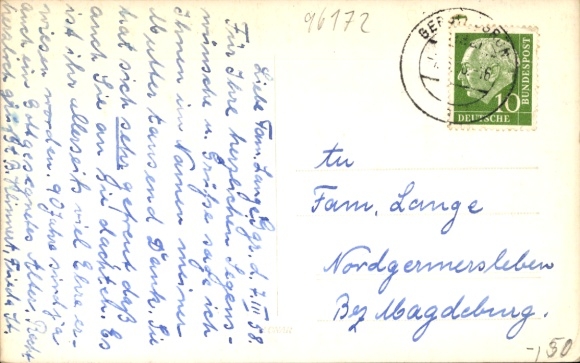 96172
BUNDESPOST
10
DEUTSCHE
Liebe Fam. Lange! d. 7. III 58.
Für Ihre herzlichen Segens-
wünsche u. Grüße sage ich
Ihnen im Namen meiner
Mutter tausend Dank. Sie
hat sich sehr gefreut daß
auch Sie an Sie dachten. Es
ist ihr allerseits viel Ehre er-
wiesen worden. 90 Jahre sind ja
auch ein gottgesegnetes Alter.
herzlich grüßt
An
Fam. Lange
Nordgermersleben
Bez Magdeburg.
-,50